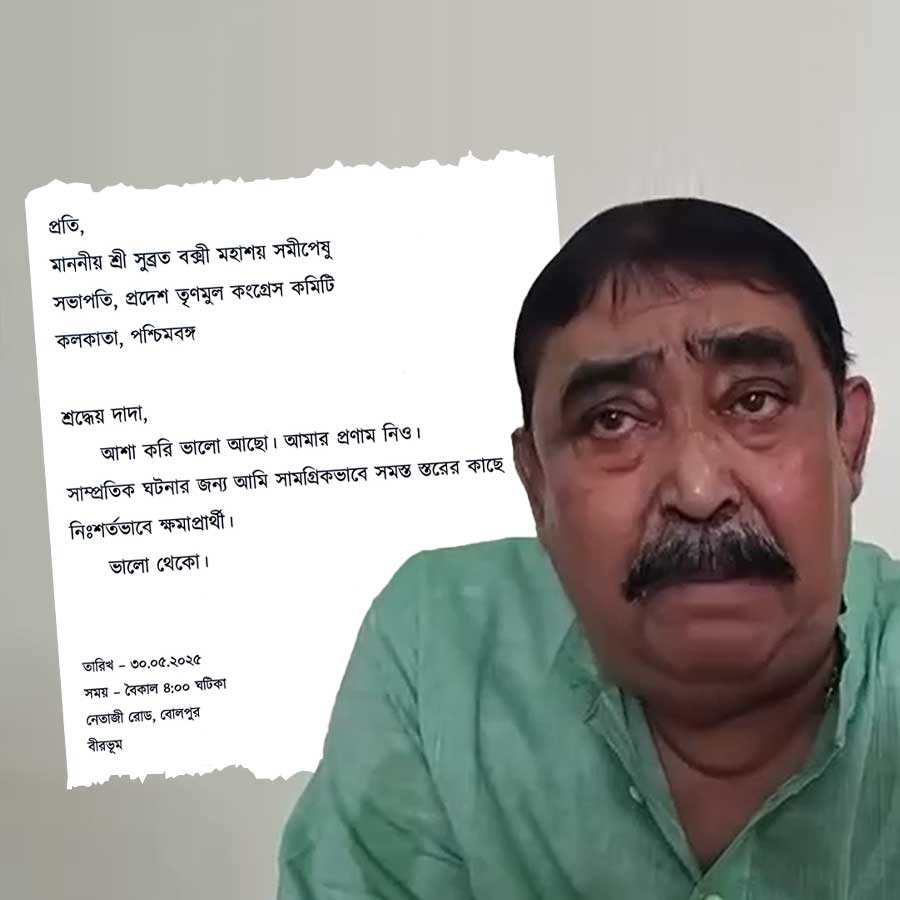 প্রতি,
মাননীয় শ্রী সুব্রত বক্সী মহাশয় সমীপেষু
সভাপতি, প্রদেশ তৃণমুল কংগ্রেস কমিটি
কলকাতা, পশ্চিমবঙ্গ
শ্রদ্ধেয় দাদা,
আশা করি ভালো আছো। আমার প্রণাম নিও।
সাম্প্রতিক ঘটনার জন্য আমি সামগ্রিকভাবে সমস্ত স্তরের কাছে
নিঃশর্তভাবে ক্ষমাপ্রার্থী।
ভালো থেকো।
তারিখ – ৩০.০৫.২০২৫
সময় – বৈকাল ৪:০০ ঘটিকা
নেতাজী রোড, বোলপুর
বীরভূম